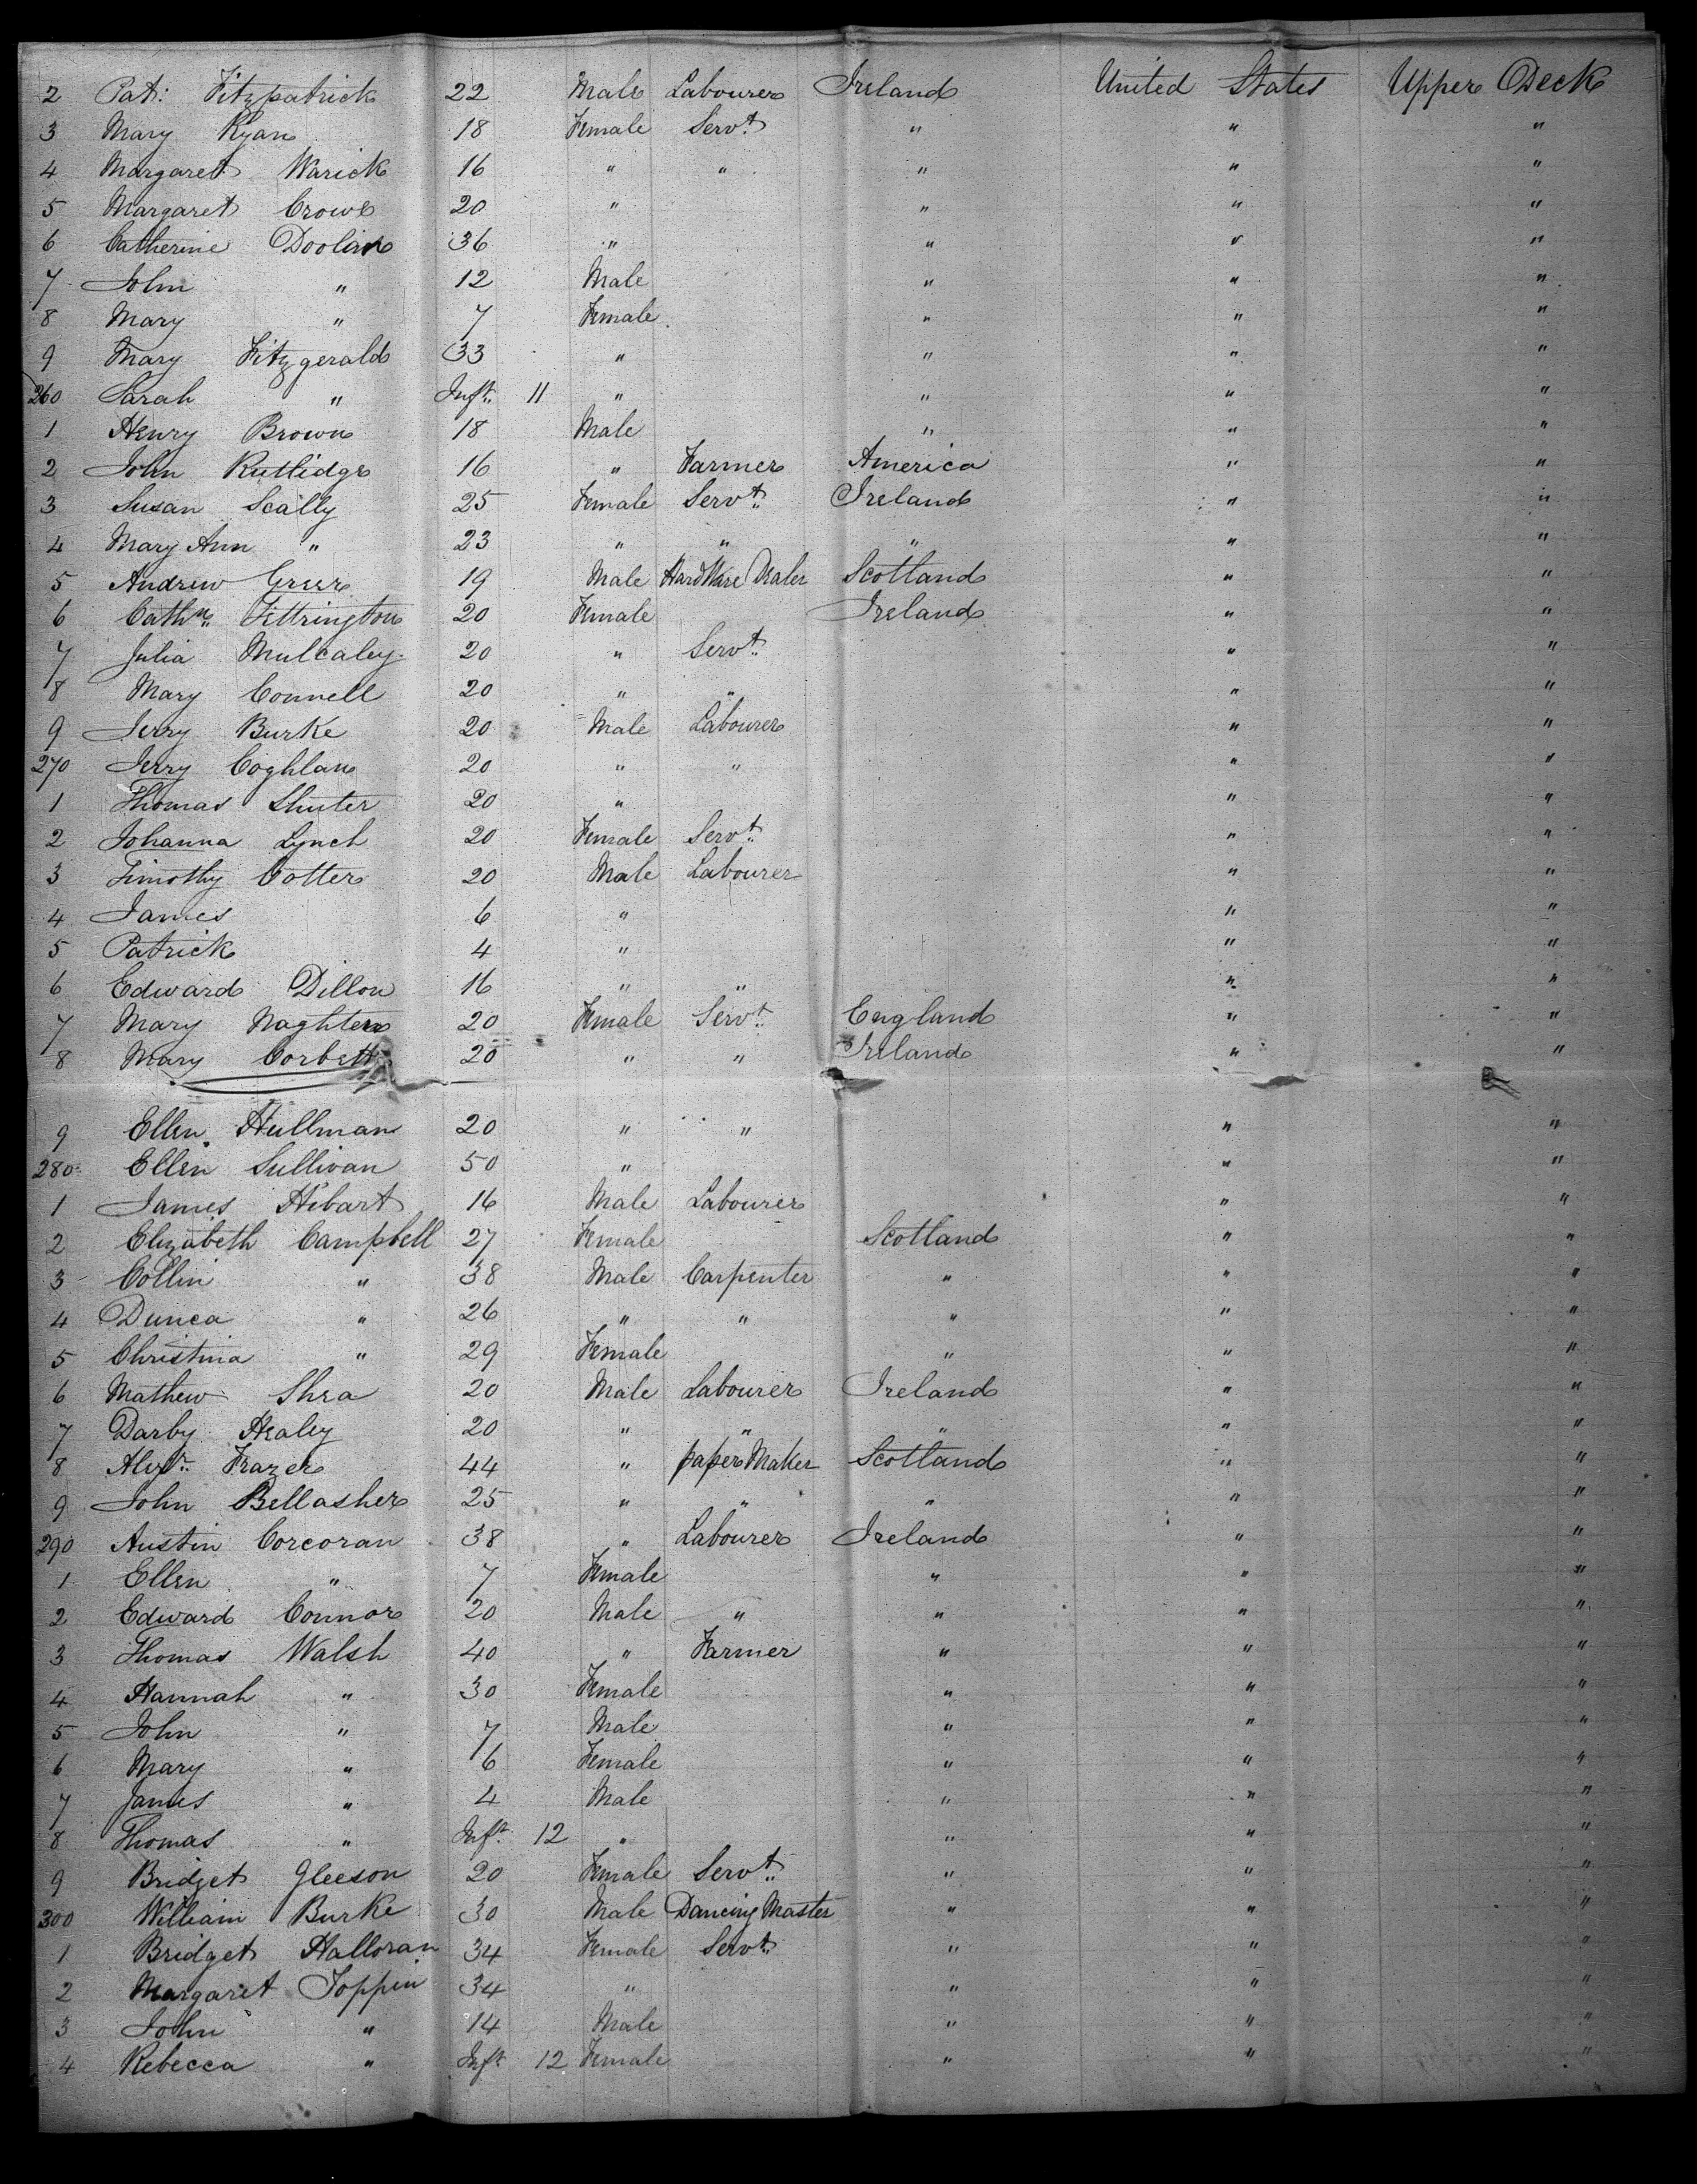 2 Pat: Fitzpatrick 22 Male Labourer Ireland United States Upper Deck
3 Mary Ryan 18 Female Servt " " "
4 Margaret Warick 16 " " " " "
5 Margaret Crowe 20 " " " "
6 Catherine Doolan 36 " " " "
7 John " 12 Male " " "
8 Mary " 7 Female " " "
9 Mary Fitzgerald 33 " " " "
260 Sarah " Inft 11 " " " "
1 Henry Brown 18 Male " " "
2 John Rutlidge 16 " Farmer America " "
3 Susan Scally 25 Female Servt Ireland " "
4 Mary Ann " 23 " " " " "
5 Andrew Greer 19 Male HardWare Dealer Scotland " "
6 Cathne Fettrington 20 Female Ireland " "
7 Julia Mulcaley 20 " Servt " "
8 Mary Connell 20 " " " "
9 Jerry Burke 20 Male Labourer " "
270 Jerry Coghlan 20 " " " "
1 Thomas Shuter 20 " " "
2 Johanna Lynch 20 Female Servt " "
3 Timothy Cotter 20 Male Labourer " "
4 James 6 " " "
5 Patrick 4 " " "
6 Edward Dillon 16 " " " "
7 Mary Naghten 20 Female Servt England " "
8 Mary Corbett 20 " " Ireland " "
9 Ellen Hullman 20 " " " "
280 Ellen Sullivan 50 " " "
1 James Hibart 16 Male Labourer " "
2 Elizabeth Campbell 27 Female Scotland " "
3 Collin " 38 Male Carpenter " " "
4 Dunca " 26 " " " " "
5 Christina " 29 Female " " "
6 Mathew Shea 20 Male Labourer Ireland " "
7 Darby Healey 20 " " " " "
8 Alexr Frazer 44 " paper Maker Scotland " "
9 John Bellasher 25 " " " " "
290 Austin Corcoran 38 " Labourer Ireland " "
1 Ellen " 7 Female " " "
2 Edward Connor 20 Male " " " "
3 Thomas Walsh 40 " Farmer " " "
4 Hannah " 30 Female " " "
5 John " 7 Male " " "
6 Mary " 6 Female " " "
7 James " 4 Male " " "
8 Thomas " Inft 12 " " " "
9 Bridget Gleeson 20 Female Servt " " "
300 William Burke 30 Male Dancing Master " " "
1 Bridget Halloran 34 Female Servt " " "
2 Margaret Toppin 34 " " " "
3 John " 14 Male " " "
4 Rebecca " Inft 12 Female " " "